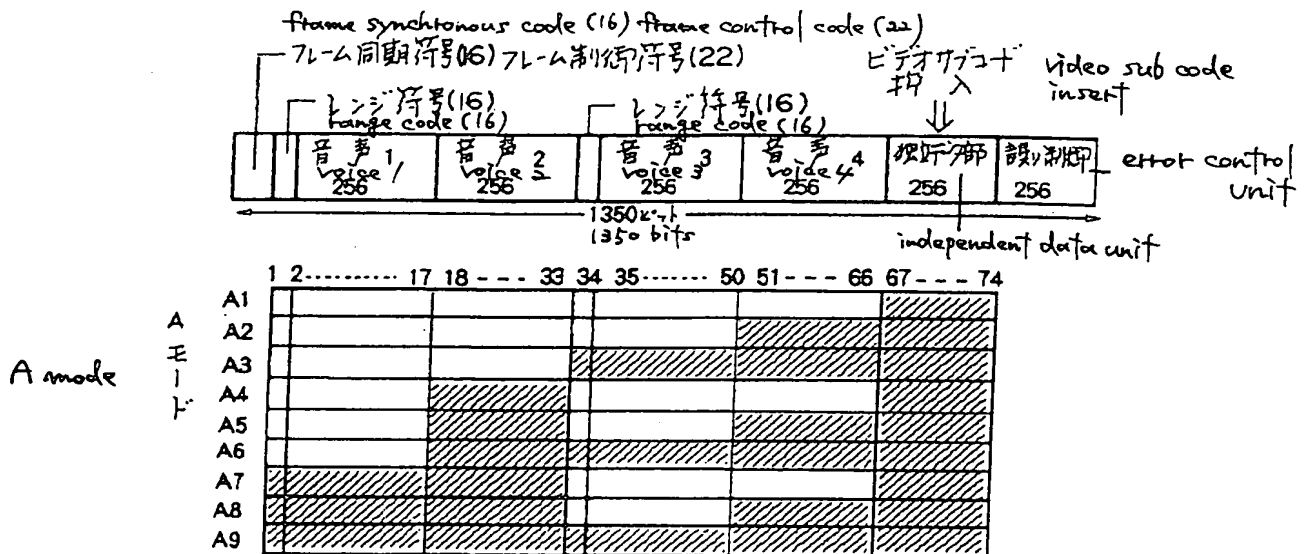 frame synchronous code (16) frame control code (22)
フレーム同期符号(16) フレーム制御符号(22)
ビデオサブコード
挿入
video sub code
insert
レンジ符号(16)
range code (16)
レンジ符号(16)
range code (16)
音声 1
voice 1
256
音声 2
voice 2
256
音声 3
voice 3
256
音声 4
voice 4
256
独立データ部
256
誤り制御
256
error control
unit
1350ビット
1350 bits
independent data unit
1 2 .......... 17 18 - - - 33 34 35 ........ 50 51 - - - 66 67 - - - - 74
A1
A2
A3
A4
A5
A6
A7
A8
A9
Aモード
A mode